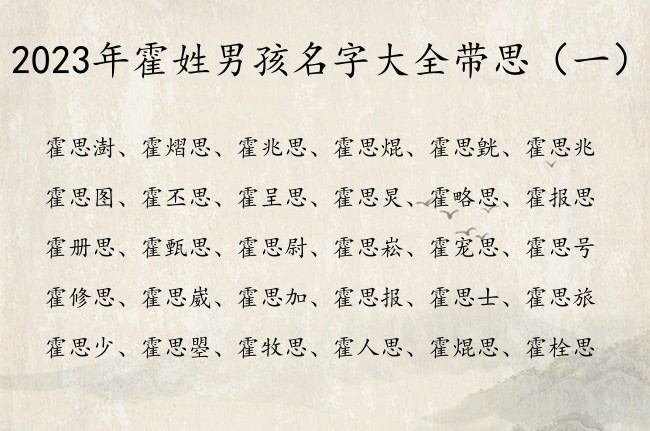 2023年霍姓男孩名字大全带思（一）
霍思澍、霍熠思、霍兆思、霍思焜、霍思皝、霍思兆
霍思图、霍丕思、霍呈思、霍思炅、霍略思、霍报思
霍册思、霍甄思、霍思尉、霍思崧、霍宠思、霍思号
霍修思、霍思崴、霍思加、霍思报、霍思士、霍思旅
霍思少、霍思曌、霍牧思、霍人思、霍焜思、霍栓思